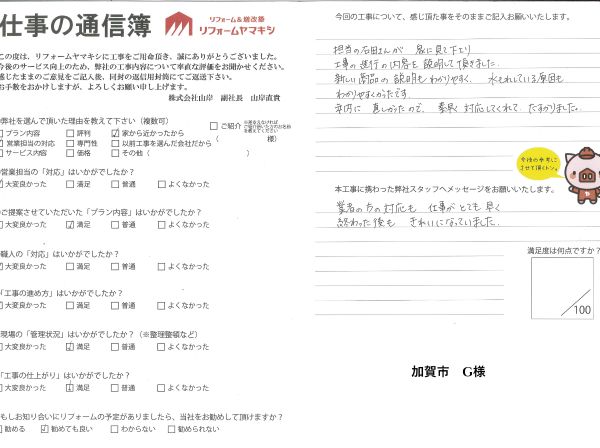 仕事の通信簿
リフォーム&増改築
リフォームヤマキシ
この度は、リフォームヤマキシに工事をご用命頂き、誠にありがとうございました。
今後のサービス向上のため、弊社の工事内容について率直な評価をお聞かせください。
感じたままのご意見をご記入後、同封の返信用封筒にてご返送下さい。
お手数をおかけしますが、よろしくお願い申し上げます。
株式会社山岸 副社長 山岸直貴
弊社を選んで頂いた理由を教えて下さい(複数可)
プラン内容 評判 家から近かったから ご紹介
営業担当の対応 専門性 以前工事を選んだ会社だから ( 様)
サービス内容 価格 その他(
営業担当の「対応」はいかがでしたか?
大変良かった 満足 普通 よくなかった
ご提案させていただいた「プラン内容」はいかがでしたか?
大変良かった 満足 普通 よくなかった
職人の「対応」はいかがでしたか?
大変良かった 満足 普通 よくなかった
「工事の進め方」はいかがでしたか?
大変良かった 満足 普通 よくなかった
現場の「管理状況」はいかがでしたか?(※整理整頓など)
大変良かった 満足 普通 よくなかった
「工事の仕上がり」はいかがでしたか?
大変良かった 満足 普通 よくなかった
もしお知り合いにリフォームの予定がありましたら、当社をお勧めして頂けますか?
勧める 勧めても良い わからない 勧められない
今回の工事について、感じ頂た事をそのままご記入お願いいたします。
担当の石田さんが 急に見て下り
工事の進行の内容を説明して頂きました。
新しい商品の説明もわかりやすく、水もれしている原因も
わかりやすかったです。
年内に直したかったので、素早く対応してくれて、たすかりました。
今後の参考に
させて頂くトン。
本工事に携わった弊社スタッフへメッセージをお願いいたします。
業者の方の対応も 仕事がとても早く
終わった後も きれいになっていました。
満足度は何点ですか?
/100
加賀市 G様